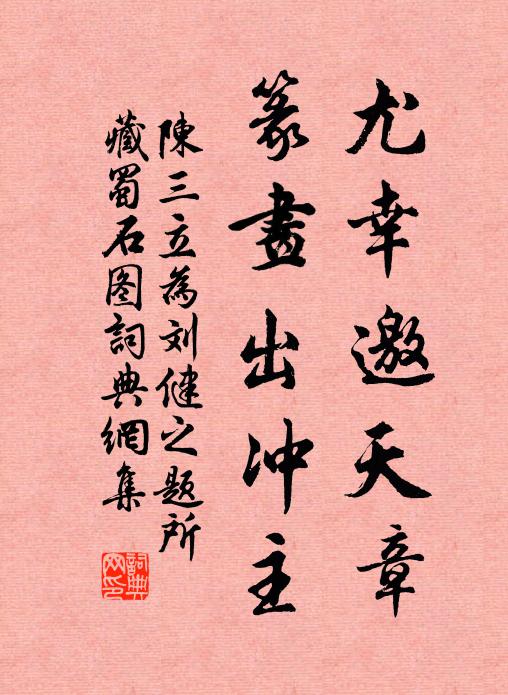 尤幸邀天章
篆畫出冲主
陳三立為刘健之题所
藏蜀石图詞典網集
詞典网印